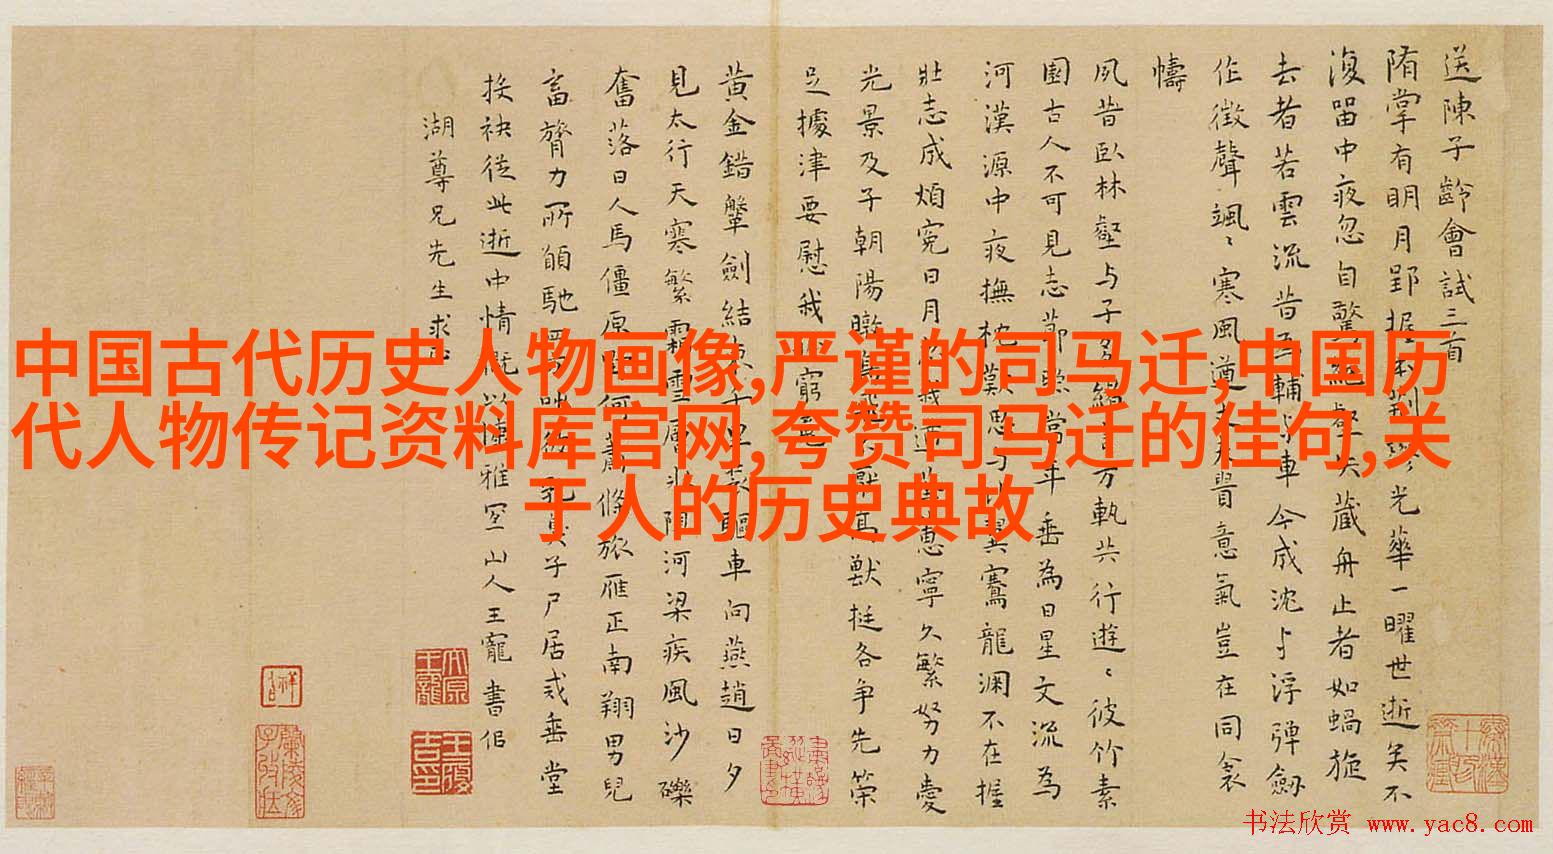 中国古代历史人物画像,严谨的司马迁,中国历
代人物传记资料库官网,夸赞司马迁的佳句,关
于人的历史典故
送陳子齡會試三首
隋掌有明月郢握光華一曜世逝矣不
復留中夜忽自驚絕壑矢藏舟止者如蝸旋
去者若雲流昔為輔与車今成沈与浮彈劍
作徵聲颯〻寒風遒意氣豈在同衾
幬
夙昔臥林壑与子万軌共行遊〻彼竹素
園古人不可見志節當年垂為日星文流為
河漢源中夜撫枕嘆思翼騫龍淵不在握
壯志成煩冤日月惠寧久繁努力愛
光景及子朝陽暾獸挺各爭先策
足據津要慰我窮
黃金錯鞶劍結驅車向燕趙日夕
見太行天寒繁霜雪層冰阻河梁疾風沙礫
奮落日人馬僵原野何蕭條旅雁正南翔男兒
畜膂力所願馳子尸居或垂堂
接袂從此逝中情慨以慷雅宜山人王寵書
湖尊兄先生求
书法欣赏 www.yac8.com